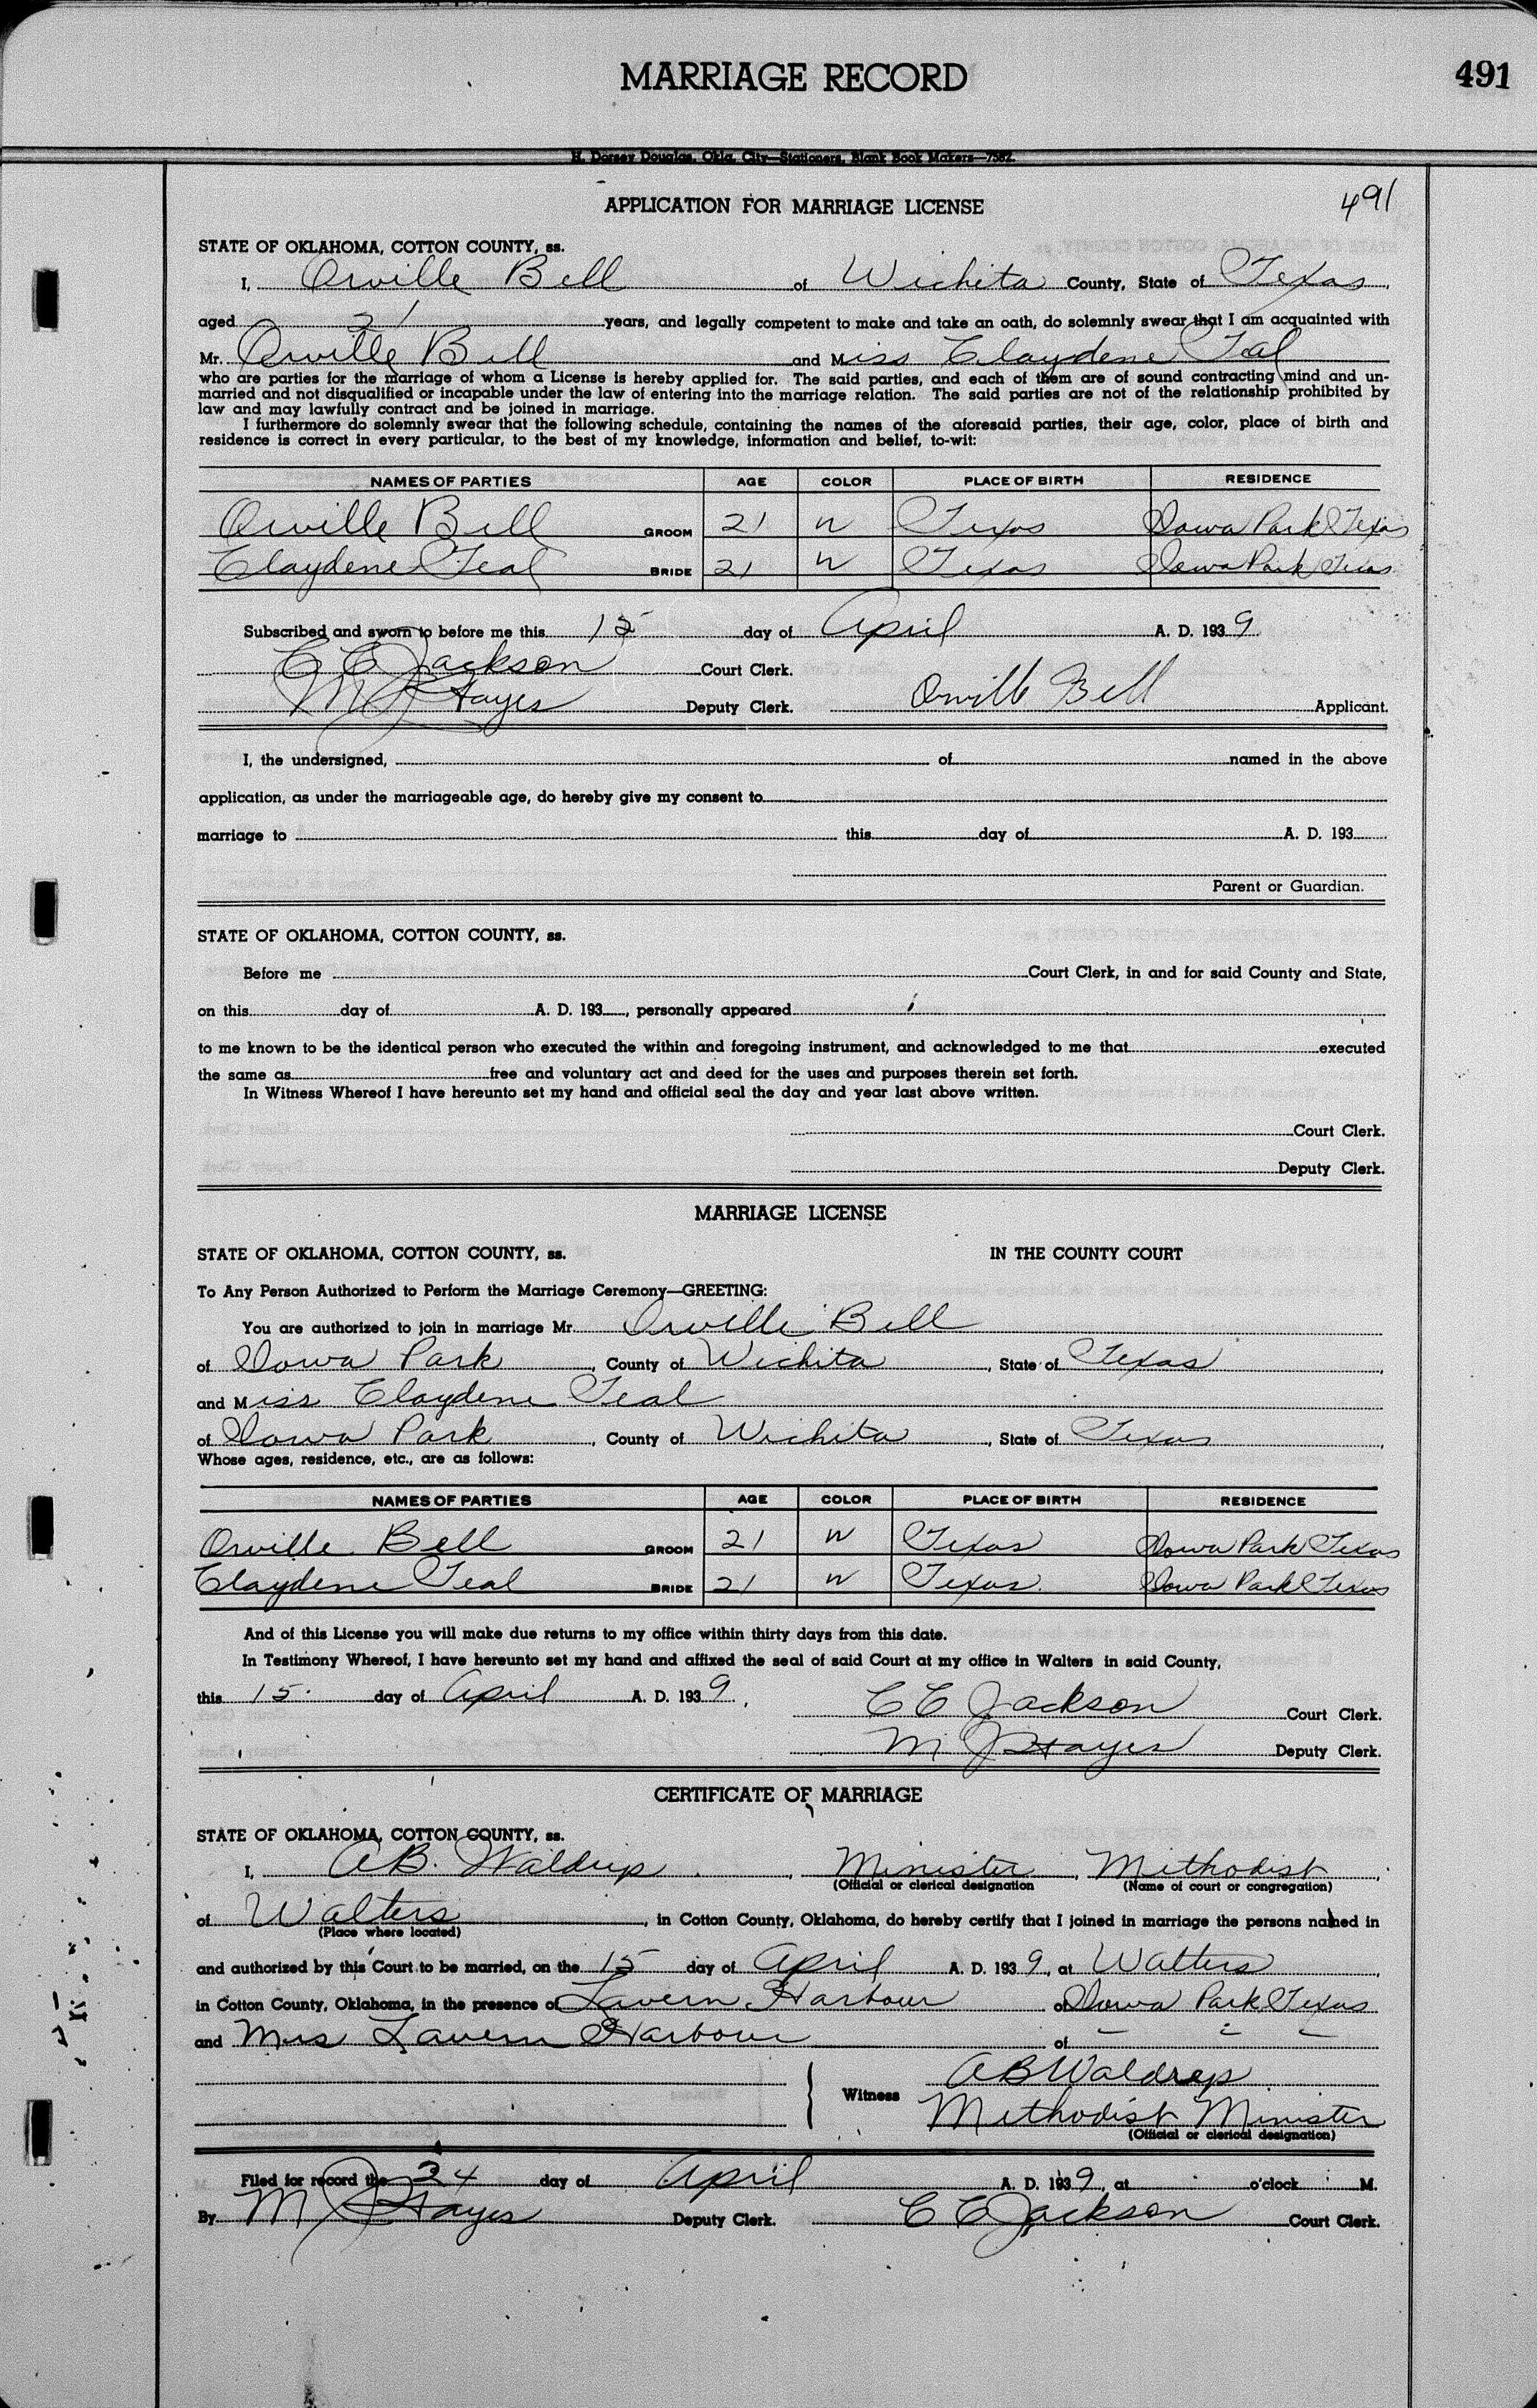 MARRIAGE RECORD
491
H. Dorsey Douglas, Okla. City—Stationers, Blank Book Makers—7582.
APPLICATION FOR MARRIAGE LICENSE
491
STATE OF OKLAHOMA, COTTON COUNTY, ss.
I, Orville Bell of Wichita County, State of Texas,
aged 21 years, and legally competent to make and take an oath, do solemnly swear that I am acquainted with
Mr. Orville Bell and Miss Claydene Teal
who are parties for the marriage of whom a License is hereby applied for. The said parties, and each of them are of sound contracting mind and un-
married and not disqualified or incapable under the law of entering into the marriage relation. The said parties are not of the relationship prohibited by
law and may lawfully contract and be joined in marriage.
I furthermore do solemnly swear that the following schedule, containing the names of the aforesaid parties, their age, color, place of birth and
residence is correct in every particular, to the best of my knowledge, information and belief, to-wit:
NAMES OF PARTIES AGE COLOR PLACE OF BIRTH RESIDENCE
Orville Bell GROOM 21 W Texas Iowa Park Texas
Claydene Teal BRIDE 21 W Texas Iowa Park Texas
Subscribed and sworn to before me this 15 day of April A. D. 1939
C C Jackson Court Clerk.
M J Hayes Deputy Clerk. Orville Bell Applicant.
I, the undersigned, of named in the above
application, as under the marriageable age, do hereby give my consent to
marriage to this day of A. D. 193
Parent or Guardian.
STATE OF OKLAHOMA, COTTON COUNTY, ss.
Before me Court Clerk, in and for said County and State,
on this day of A. D. 193 , personally appeared
to me known to be the identical person who executed the within and foregoing instrument, and acknowledged to me that executed
the same as free and voluntary act and deed for the uses and purposes therein set forth.
In Witness Whereof I have hereunto set my hand and official seal the day and year last above written.
Court Clerk.
Deputy Clerk.
MARRIAGE LICENSE
STATE OF OKLAHOMA, COTTON COUNTY, ss. IN THE COUNTY COURT
To Any Person Authorized to Perform the Marriage Ceremony—GREETING:
You are authorized to join in marriage Mr. Orville Bell
of Iowa Park, County of Wichita, State of Texas,
and Miss Claydene Teal
of Iowa Park, County of Wichita, State of Texas,
Whose ages, residence, etc., are as follows:
NAMES OF PARTIES AGE COLOR PLACE OF BIRTH RESIDENCE
Orville Bell GROOM 21 W Texas Iowa Park Texas
Claydene Teal BRIDE 21 W Texas Iowa Park Texas
And of this License you will make due returns to my office within thirty days from this date.
In Testimony Whereof, I have hereunto set my hand and affixed the seal of said Court at my office in Walters in said County,
this 15 day of April A. D. 1939.
C C Jackson Court Clerk.
M J Hayes Deputy Clerk.
CERTIFICATE OF MARRIAGE
STATE OF OKLAHOMA, COTTON COUNTY, ss.
I, A B. Waldrup, Minister, Methodist,
(Official or clerical designation (Name of court or congregation)
of Walters, in Cotton County, Oklahoma, do hereby certify that I joined in marriage the persons named in
(Place where located)
and authorized by this Court to be married, on the 15 day of April A. D. 1939, at Walters,
in Cotton County, Oklahoma, in the presence of Lavern Harbour of Iowa Park Texas
and Mrs Lavern Harbour of " " "
Witness A B Waldrep
Methodist Minister
(Official or clerical designation)
Filed for record the 24 day of April A. D. 1939, at o'clock M.
By M J Hayes Deputy Clerk. C C Jackson Court Clerk.